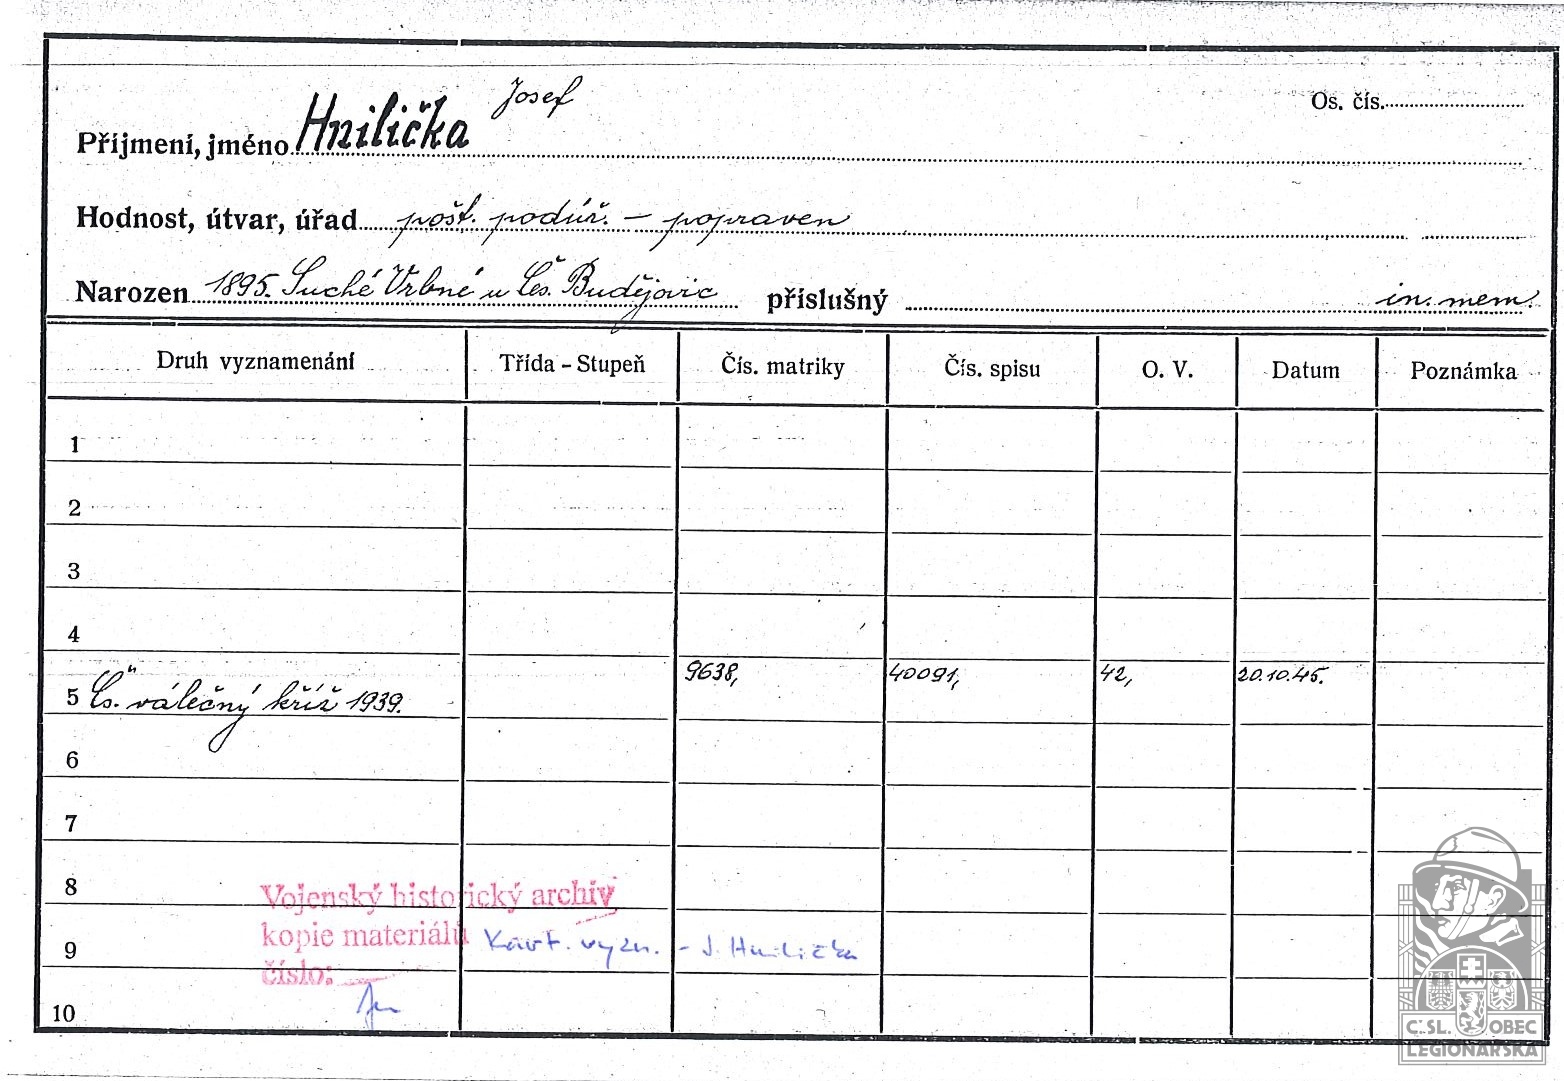 Josef
Os. čís.
Příjmení, jméno Hnilička
Hodnost, útvar, úřad pošt. podúř. – popraven
Narozen 1895. Suché Vrbné u Čes. Budějovic příslušný in. mem.
Druh vyznamenání Třída – Stupeň Čís. matriky Čís. spisu O. V. Datum Poznámka
1
2
3
4
5 Čs. válečný kříž 1939. 9638, 40091, 42, 20.10.45.
6
7
8
Vojenský historický archiv
kopie materiálů Kart. vyzn. – J. Hnilička
9
číslo:
10
Č.SL. OBEC
LEGIONÁŘSKÁ